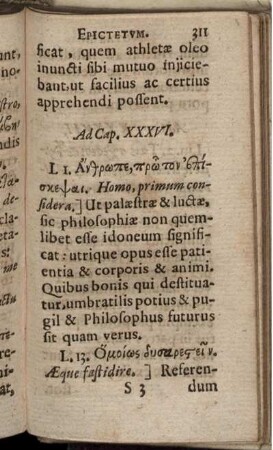 EPICTETVM. 311
ficat, quem athletæ oleo
inuncti sibi mutuo injicie-
bant, ut facilius ac certius
apprehendi possent.
Ad Cap. XXXVI.
L 1. Ανθρωπε, πρῶτον ἐπί-
σκεψαι. Homo, primum con-
sidera.] Ut palæstræ & luctæ,
sic philosophiæ non quem-
libet esse idoneum signifi-
cat: utrique opus esse pati-
entia & corporis & animi.
Quibus bonis qui destitua-
tur, umbratilis potius & pu-
gil & Philosophus futurus
sit quam verus.
L. 13. Ὁμοίως δυσαρεςεῖν.
Æque fastidire. ] Referen-
S 3 dum